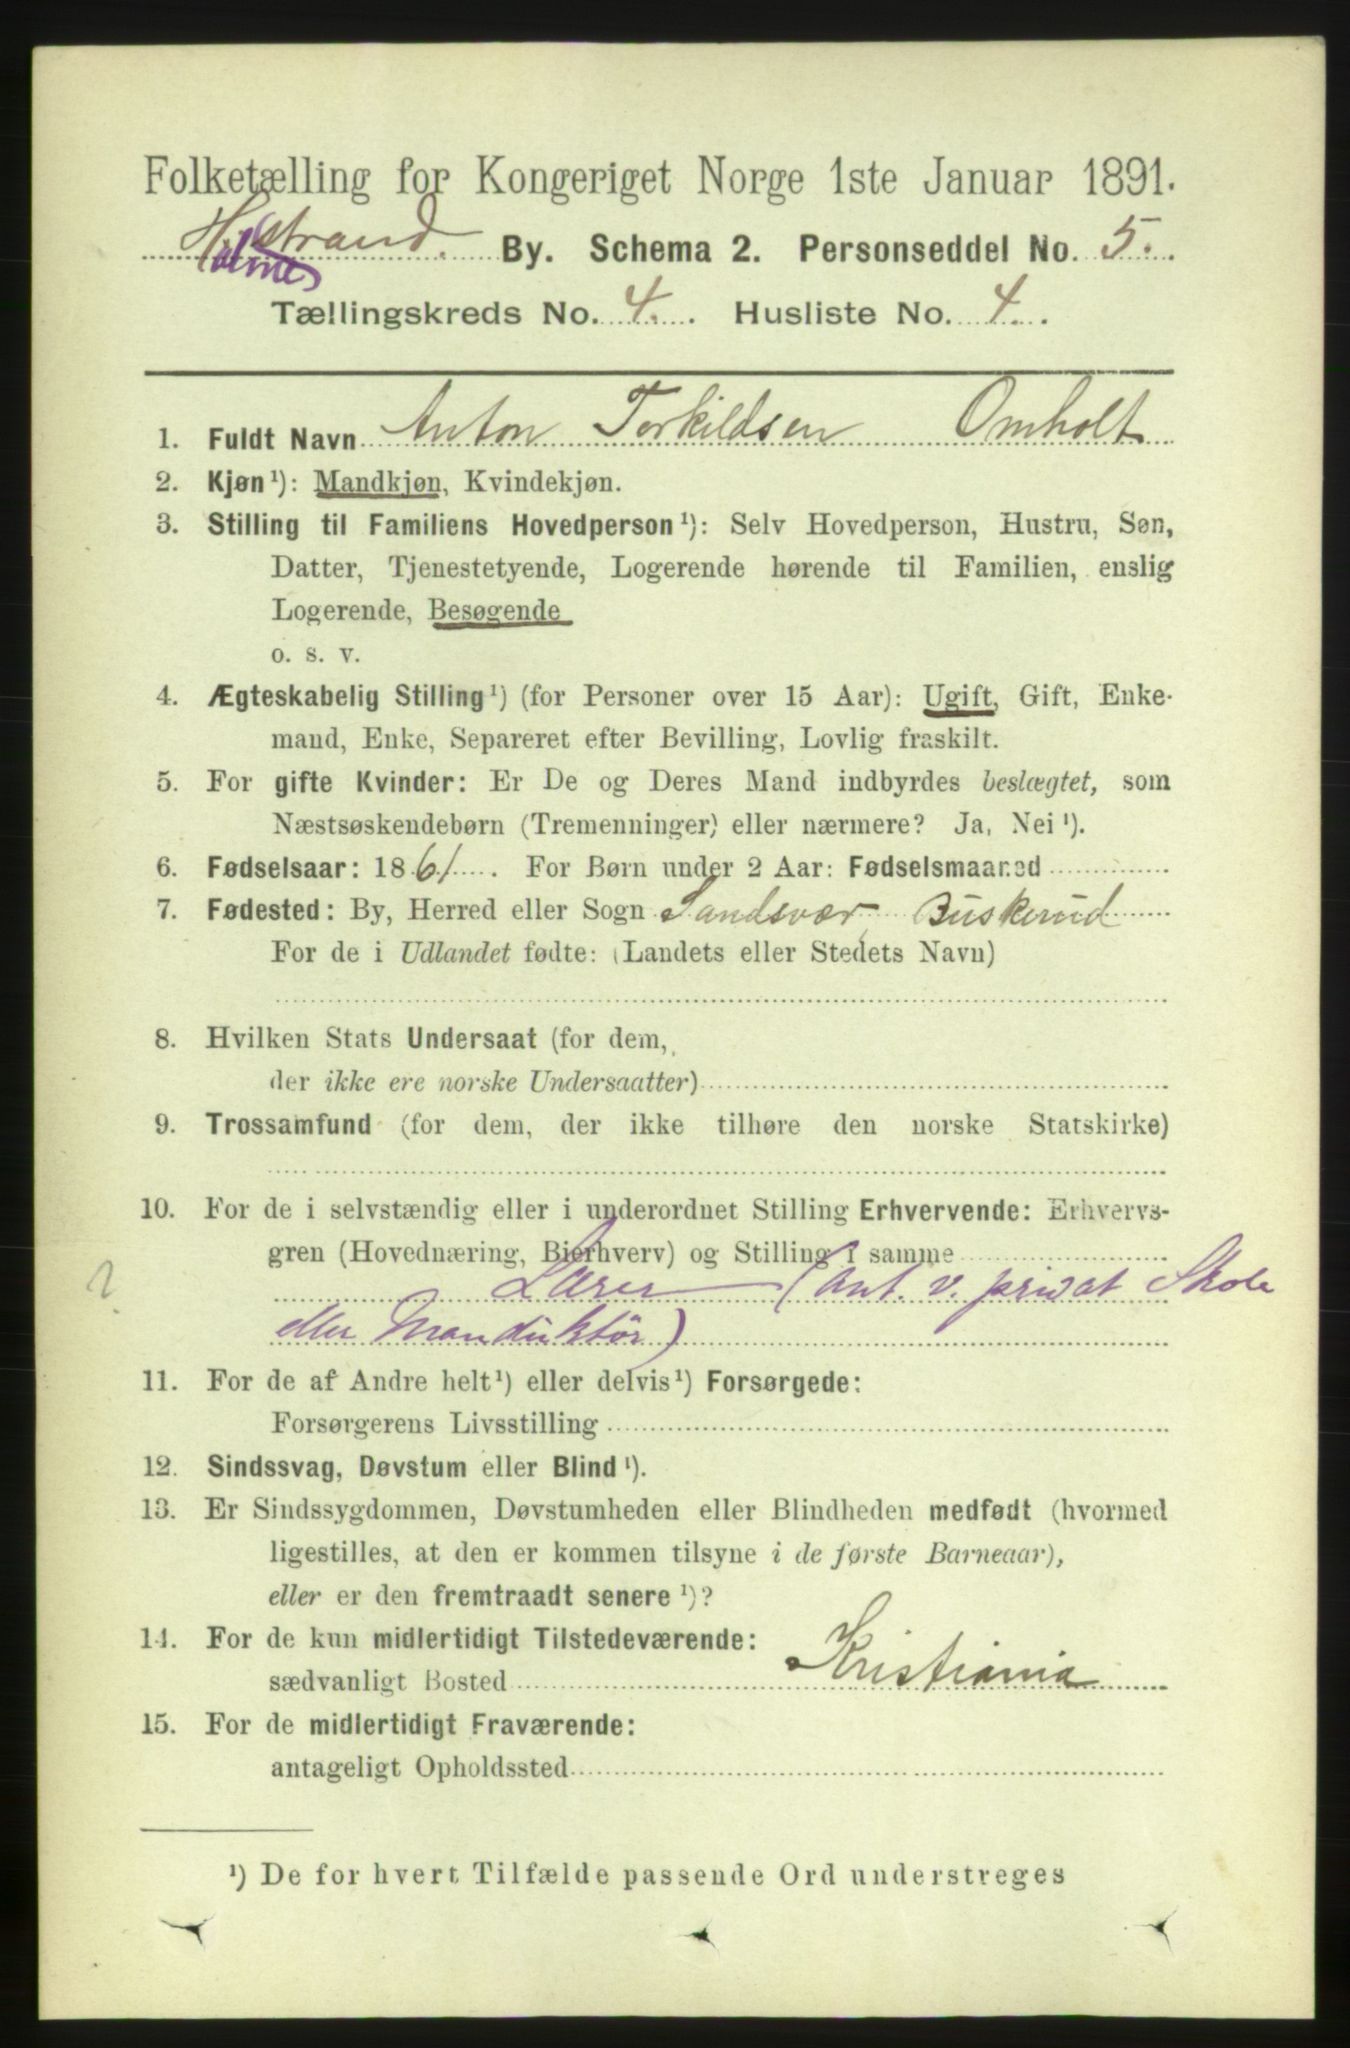 Folketælling for Kongeriget Norge 1ste Januar 1891.
H.strand. By. Schema 2. Personseddel No. 5.
olmes
Tællingskreds No. 4. Husliste No. 4.
1. Fuldt Navn Anton Torkildsen Omholt
2. Kjøn¹): Mandkjøn, Kvindekjøn.
3. Stilling til Familiens Hovedperson¹): Selv Hovedperson, Hustru, Søn,
Datter, Tjenestetyende, Logerende hørende til Familien, enslig
Logerende, Besøgende
o. s. v.
4. Ægteskabelig Stilling¹) (for Personer over 15 Aar): Ugift, Gift, Enke-
mand, Enke, Separeret efter Bevilling, Lovlig fraskilt.
5. For gifte Kvinder: Er De og Deres Mand indbyrdes beslægtet, som
Næstsøskendebørn (Tremenninger) eller nærmere? Ja, Nei¹).
6. Fødselsaar: 1861. For Børn under 2 Aar: Fødselsmaaned
7. Fødested: By, Herred eller Sogn Sandsvær, Buskerud
For de i Udlandet fødte: (Landets eller Stedets Navn)
8. Hvilken Stats Undersaat (for dem,
der ikke ere norske Undersaatter)
9. Trossamfund (for dem, der ikke tilhøre den norske Statskirke)
10. For de i selvstændig eller i underordnet Stilling Erhvervende: Erhvervs-
gren (Hovednæring, Bierhverv) og Stilling i samme
? Lærer (ant. v. privat Skole
eller Manduktör)
11. For de af Andre helt¹) eller delvis¹) Forsørgede:
Forsørgerens Livsstilling
12. Sindssvag, Døvstum eller Blind¹).
13. Er Sindssygdommen, Døvstumheden eller Blindheden medfødt (hvormed
ligestilles, at den er kommen tilsyne i de første Barneaar),
eller er den fremtraadt senere¹)?
14. For de kun midlertidigt Tilstedeværende:
sædvanligt Bosted Kristiania
15. For de midlertidigt Fraværende:
antageligt Opholdssted
¹) De for hvert Tilfælde passende Ord understreges